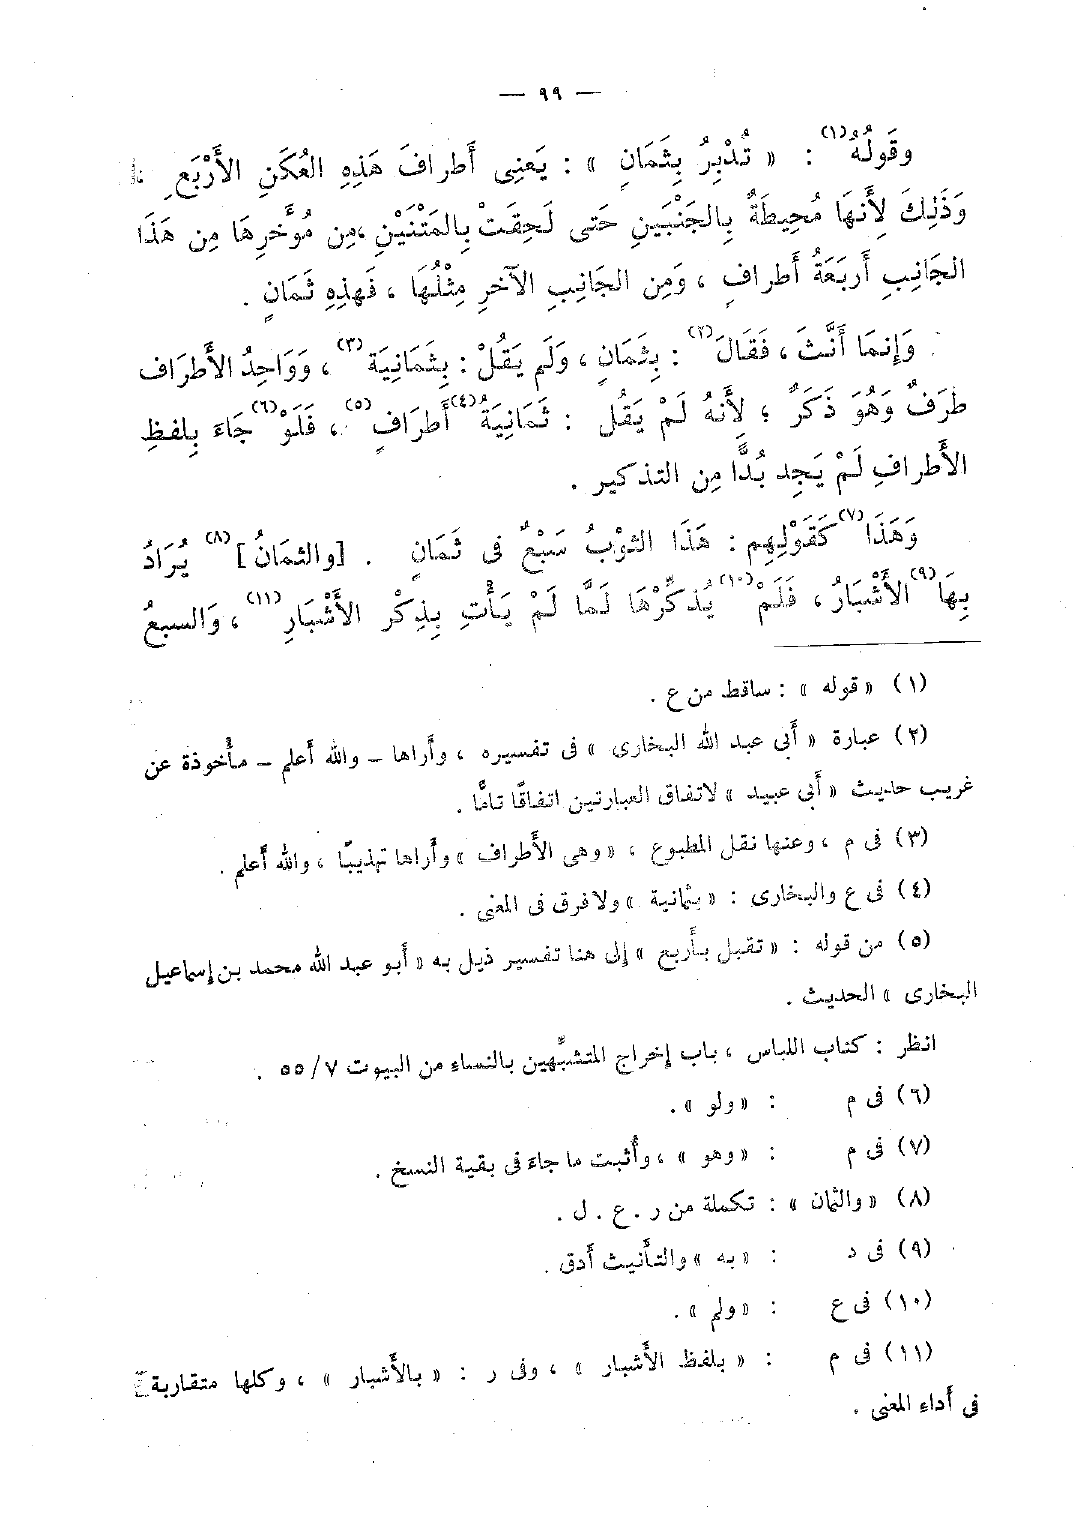 — ٩٩ —
وقَولُهُ(١) : « تُدْبِرُ بِثَمَانٍ » : يَعنِى أَطرافَ هَذِهِ العُكَنِ الأَرْبَعِ ،
وَذَلِكَ لِأَنهَا مُحِيطَةٌ بِالجَنْبَينِ حَتى لَحِقَتْ بِالمَتْنَيْنِ ،مِن مُؤَخرِهَا مِن هَذَا
الجَانِبِ أَربَعَةُ أَطرافٍ ، وَمِن الجَانِبِ الآخرِ مِثْلُهَا ، فَهذِهِ ثَمَانٍ .
وَإِنمَا أَنَّثَ ، فَقَالَ(٢) : بِثَمَانٍ ، وَلَم يَقُلْ : بِثَمَانِيَة(٣) ، وَوَاحِدُ الأَطرافِ
طَرَفٌ وَهُوَ ذَكَرٌ ؛ لِأَنهُ لَمْ يَقُل : ثَمَانِيَةُ(٤) أَطرَافٍ(٥) ، فَلَوْ(٦) جَاءَ بِلفظِ
الأَطرافِ لَمْ يَجِد بُدًّا مِن التذكير .
وَهَذَا(٧) كَقَوْلِهِم : هَذَا الثوْبُ سَبْعٌ فى ثَمَانٍ . [والثمَانُ](٨) يُرَادُ
بِهَا(٩) الأَشْبَارُ ، فَلَمْ(١٠) يُذكِّرْهَا لَمَّا لَمْ يَأْتِ بِذِكْر الأَشْبَارِ(١١) ، وَالسبعُ
(١) « قوله » : ساقط من ع .
(٢) عبارة « أَبى عبد الله البخارى » فى تفسيره ، وأَراها – والله أَعلم – مأْخوذة عن
غريب حديث « أَبى عبيد » لاتفاق العبارتين اتفاقًا تامًّا .
(٣) فى م ، وعنها نقل المطبوع ، « وهى الأَطراف » وأَراها تهذيبًا ، والله أَعلم .
(٤) فى ع والبخارى : « بثمانية » ولا فرق فى المعنى .
(٥) من قوله : « تقبل بأَربع » إِلى هنا تفسير ذيل به « أَبو عبد الله محمد بن إسماعيل
البخارى » الحديث .
انظر : كتاب اللباس ، باب إخراج المتشبِّهين بالنساء من البيوت ٧/ ٥٥ .
(٦) فى م : « ولو » .
(٧) فى م : « وهو » ، وأُثبت ما جاءَ فى بقية النسخ .
(٨) « والثمان » : تكملة من ر . ع . ل .
(٩) فى د : « به » والتأْنيث أَدق .
(١٠) فى ع : « ولم » .
(١١) فى م : « بلفظ الأَشبار » ، وفى ر : « بالأَشبار » ، وكلها متقاربة
فى أَداءِ المعنى .